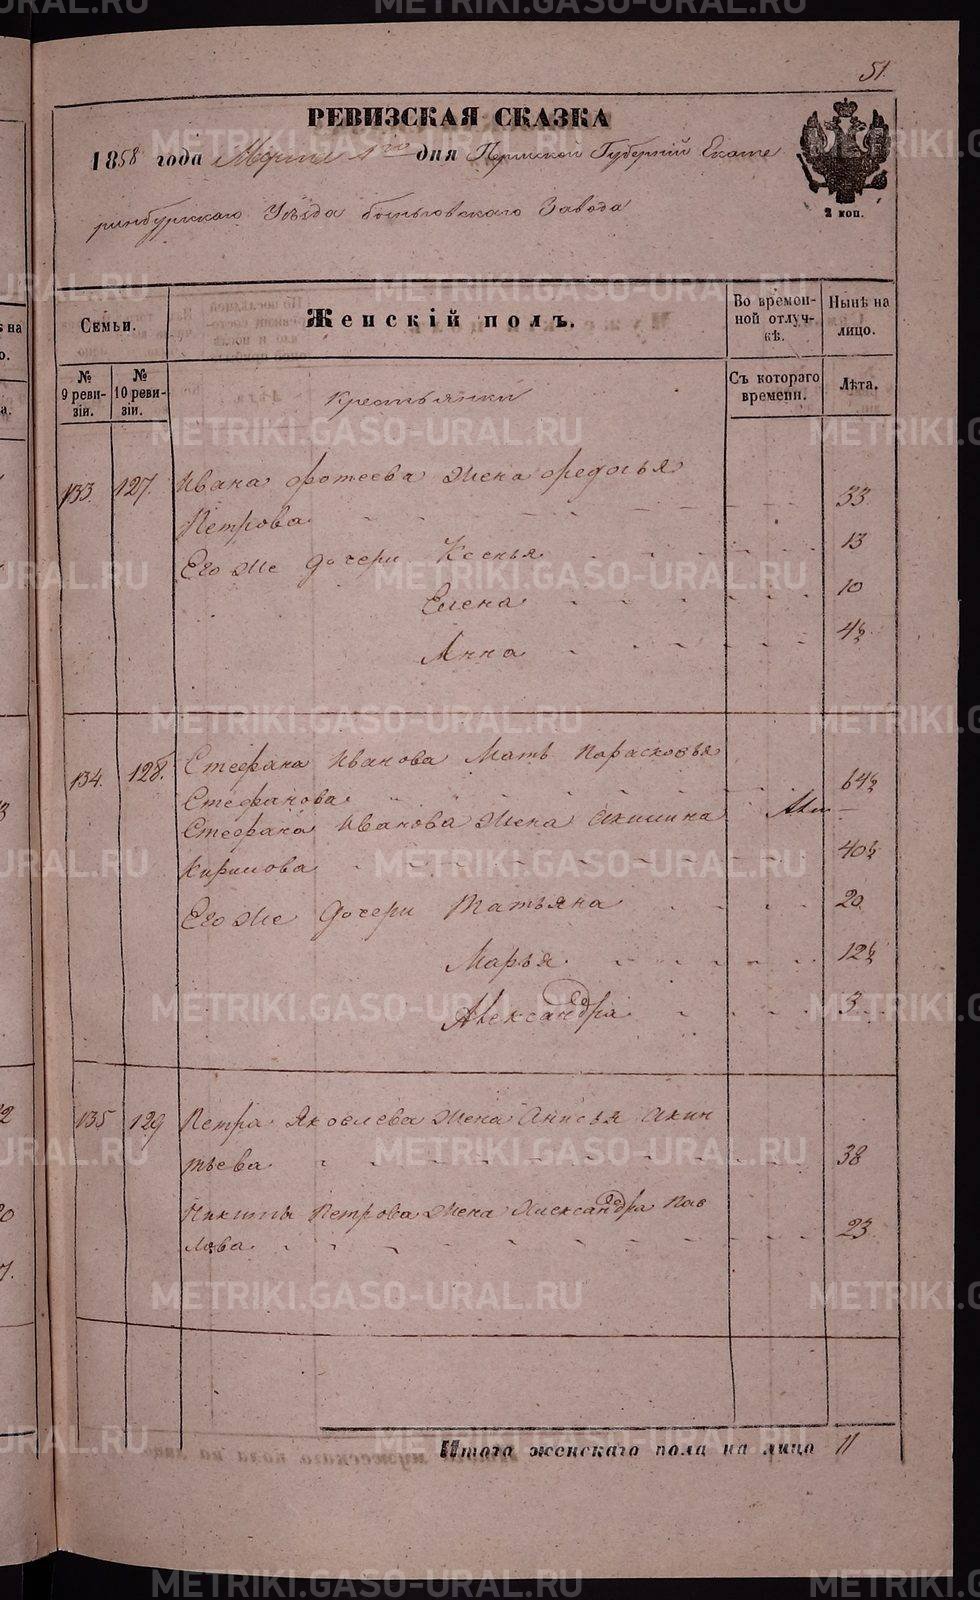 51.
РЕВИЗСКАЯ СКАЗКА
1858 года Марта 1го дня Пермской Губерніи Екате
ринбургскаго Уѣзда Быньговскаго Завода
2 коп.
Семьи.
Женскій полъ.
Во времен-
ной отлуч-
кѣ.
Нынѣ на
лицо.
№
9 реви-
зіи.
№
10 реви-
зіи.
Съ котораго
времени.
Лѣта.
Крестьянки
133. 127. Ивана Фотеева жена Федосья
Петрова 33
Его же дочери Ксенья 13
Елена 10
Анна 4½
134. 128. Стефана Иванова Мать Парасковья
Стефанова 64½
Стефана Иванова жена Акилина
Кирилова 40½
Его же дочери Татьяна 20
Марья 12½
Александра 3
135 129 Петра Яковлева жена Анисья Акин
тьева 38
Никиты Петрова жена Александра Пав
лова 23
Итого женскаго пола на лицо 11
METRIKI.GASO-URAL.RU